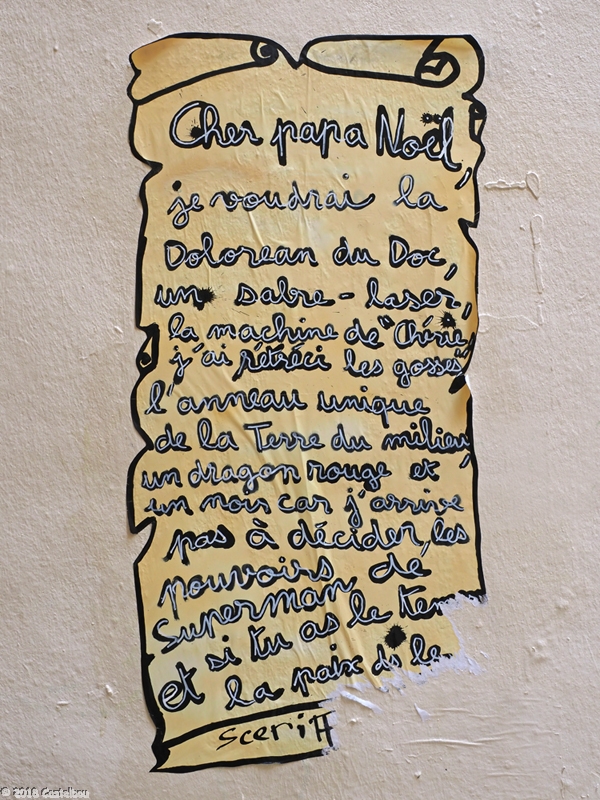 Cher papa Noël,
je voudrai la
Dolorean du Doc,
un sabre-laser,
la machine de "Chérie
j'ai rétréci les gosses",
l'anneau unique
de la Terre du milieu,
un dragon rouge et
un noir car j'arrive
pas à décider, les
pouvoirs de
Superman
et si tu as le tem
la paix ds le
Sceriff
© 2018 Castelbou